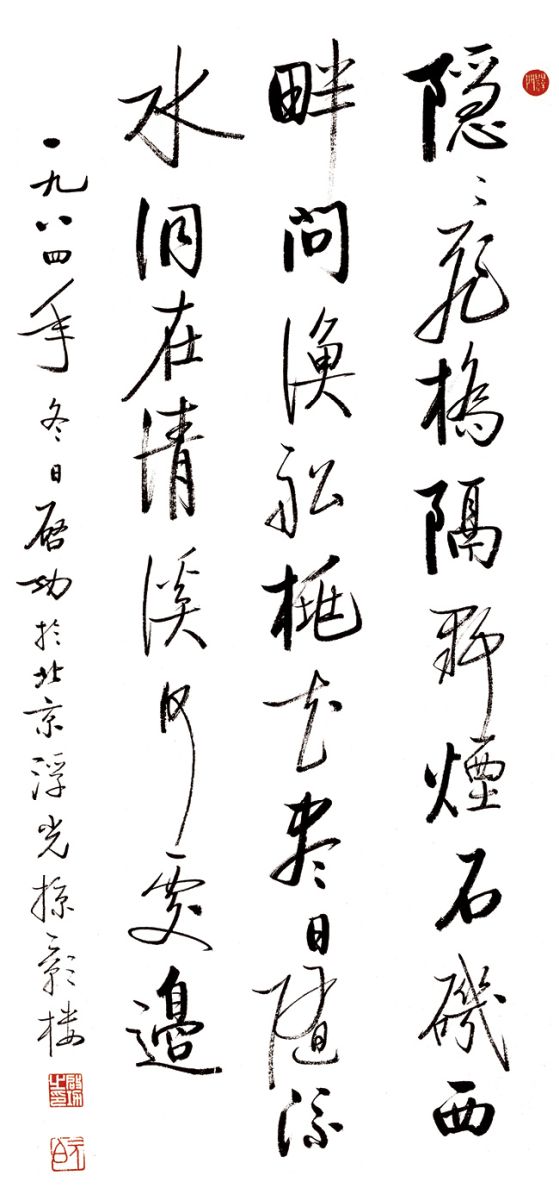 隱〻飛橋隔野煙石磯西
畔問漁船桃花盡日隨流
水洞在清溪何處邊
一九八四年冬日啟功於北京浮光掠影樓
啟功之印
元白